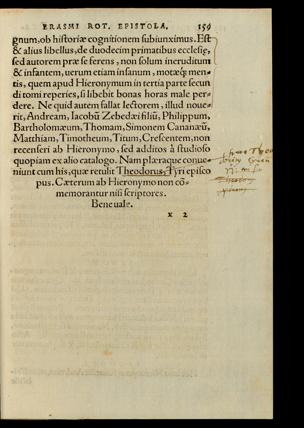 ERASMI ROT. EPISTOLA. 159
gnum, ob historiæ cognitionem subiunximus. Est
& alius libellus, de duodecim primatibus ecclesię,
sed autorem præ se ferens, non solum ineruditum
& infantem, uerum etiam insanum, motæq́; men-
tis, quem apud Hieronymum in tertia parte secun
di tomi reperies, si libebit bonas horas male per-
dere. Ne quid autem fallat lectorem, illud noue-
rit, Andream, Iacobũ Zebedæi filiũ, Philippum,
Bartholomæum, Thomam, Simonem Cananæũ,
Matthiam, Timotheum, Titum, Crescentem, non
recenseri ab Hieronymo, sed additos à studioso
quopiam ex alio catalogo. Nam plæraque conue-
niunt cum his, quæ retulit Theodorus, Tyri episco
pus. Cæterum ab Hieronymo non cõ-
memorantur nisi scriptores.
Bene uale.
x 2